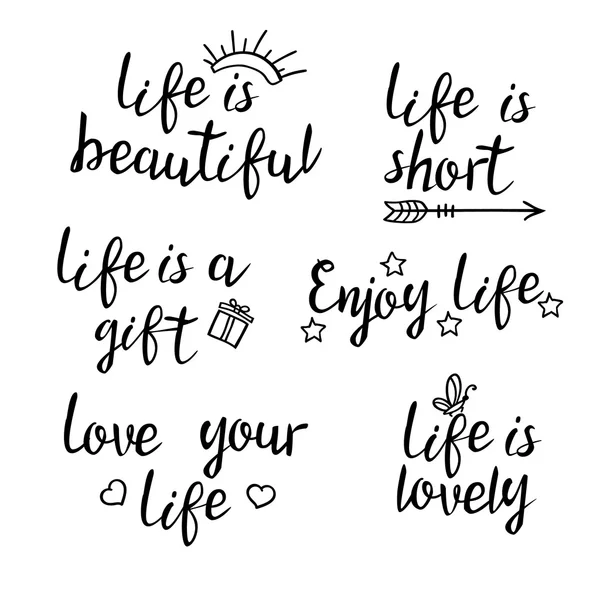 life is
beautiful
life is
short
life is a
gift
Enjoy life
love your
life
life is
lovely